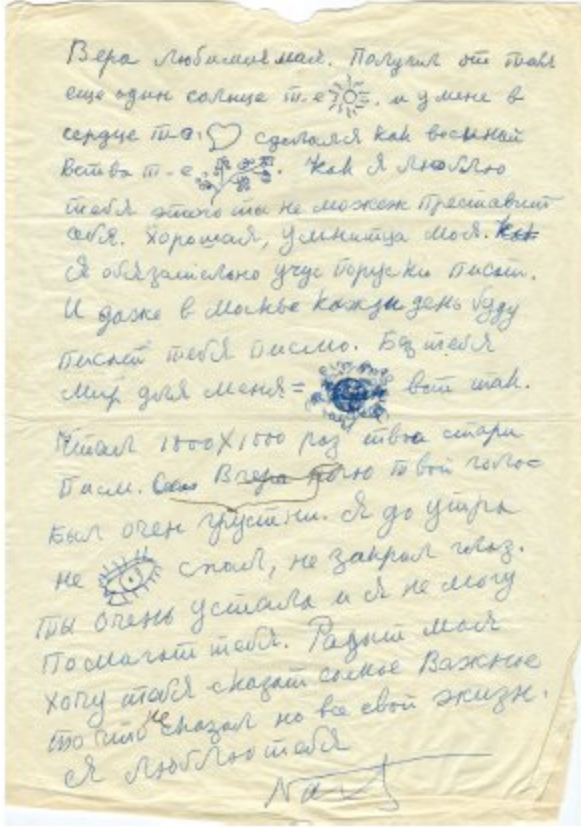 Вера любимая мая. Получил от тебя
еще один солнце т.е. и у мене в
сердце т.е. сделался как весенный
ветва т-е. Как я люблю
тебя этого ты не можеж преставит
себя. Хорошая, умнитца моя.
Я обязательно учус поруски писат.
И даже в Москве кажди день буду
писат тебя писмо. Без тебя
мир для меня= вот так.
Читал 1000X1000 раз твои стари
писм. Вчера ночю твой голос
был очен грустни. Я до утра
не спал, не закрыл глаз.
Ты очень устала и я не могу
помагат тебя. Радост моя
хочу тебя сказат самое важное
то что не сказал но все свой жизн.
Я люблю тебя